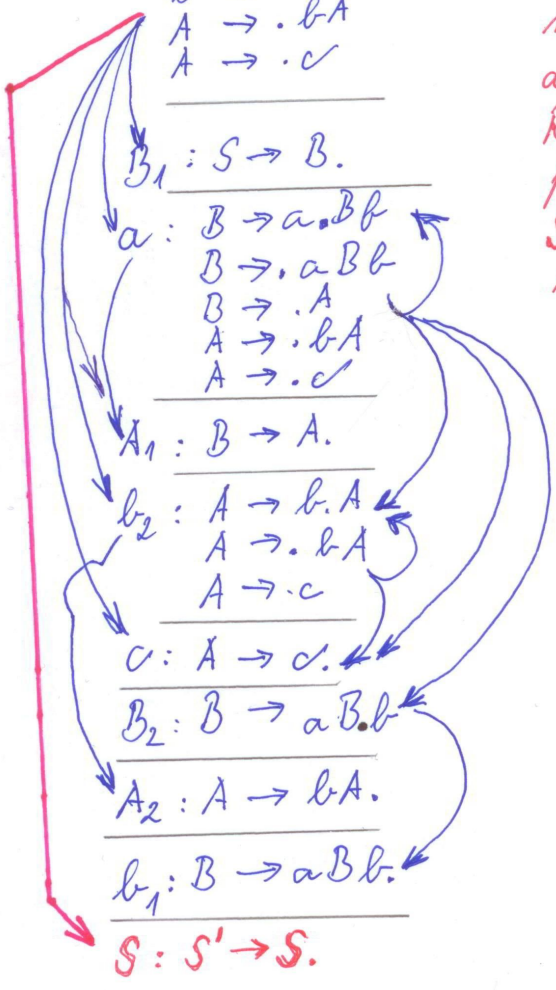 A → . b A
A → . c
B₁ : S → B.
a : B → a.Bb
B → . a B b
B → . A
A → . b A
A → . c
A₁ : B → A.
b₂ : A → b.A
A → . b A
A → . c
c : A → c.
B₂ : B → aB.b
A₂ : A → bA.
b₁ : B → aBb.
S : S' → S.